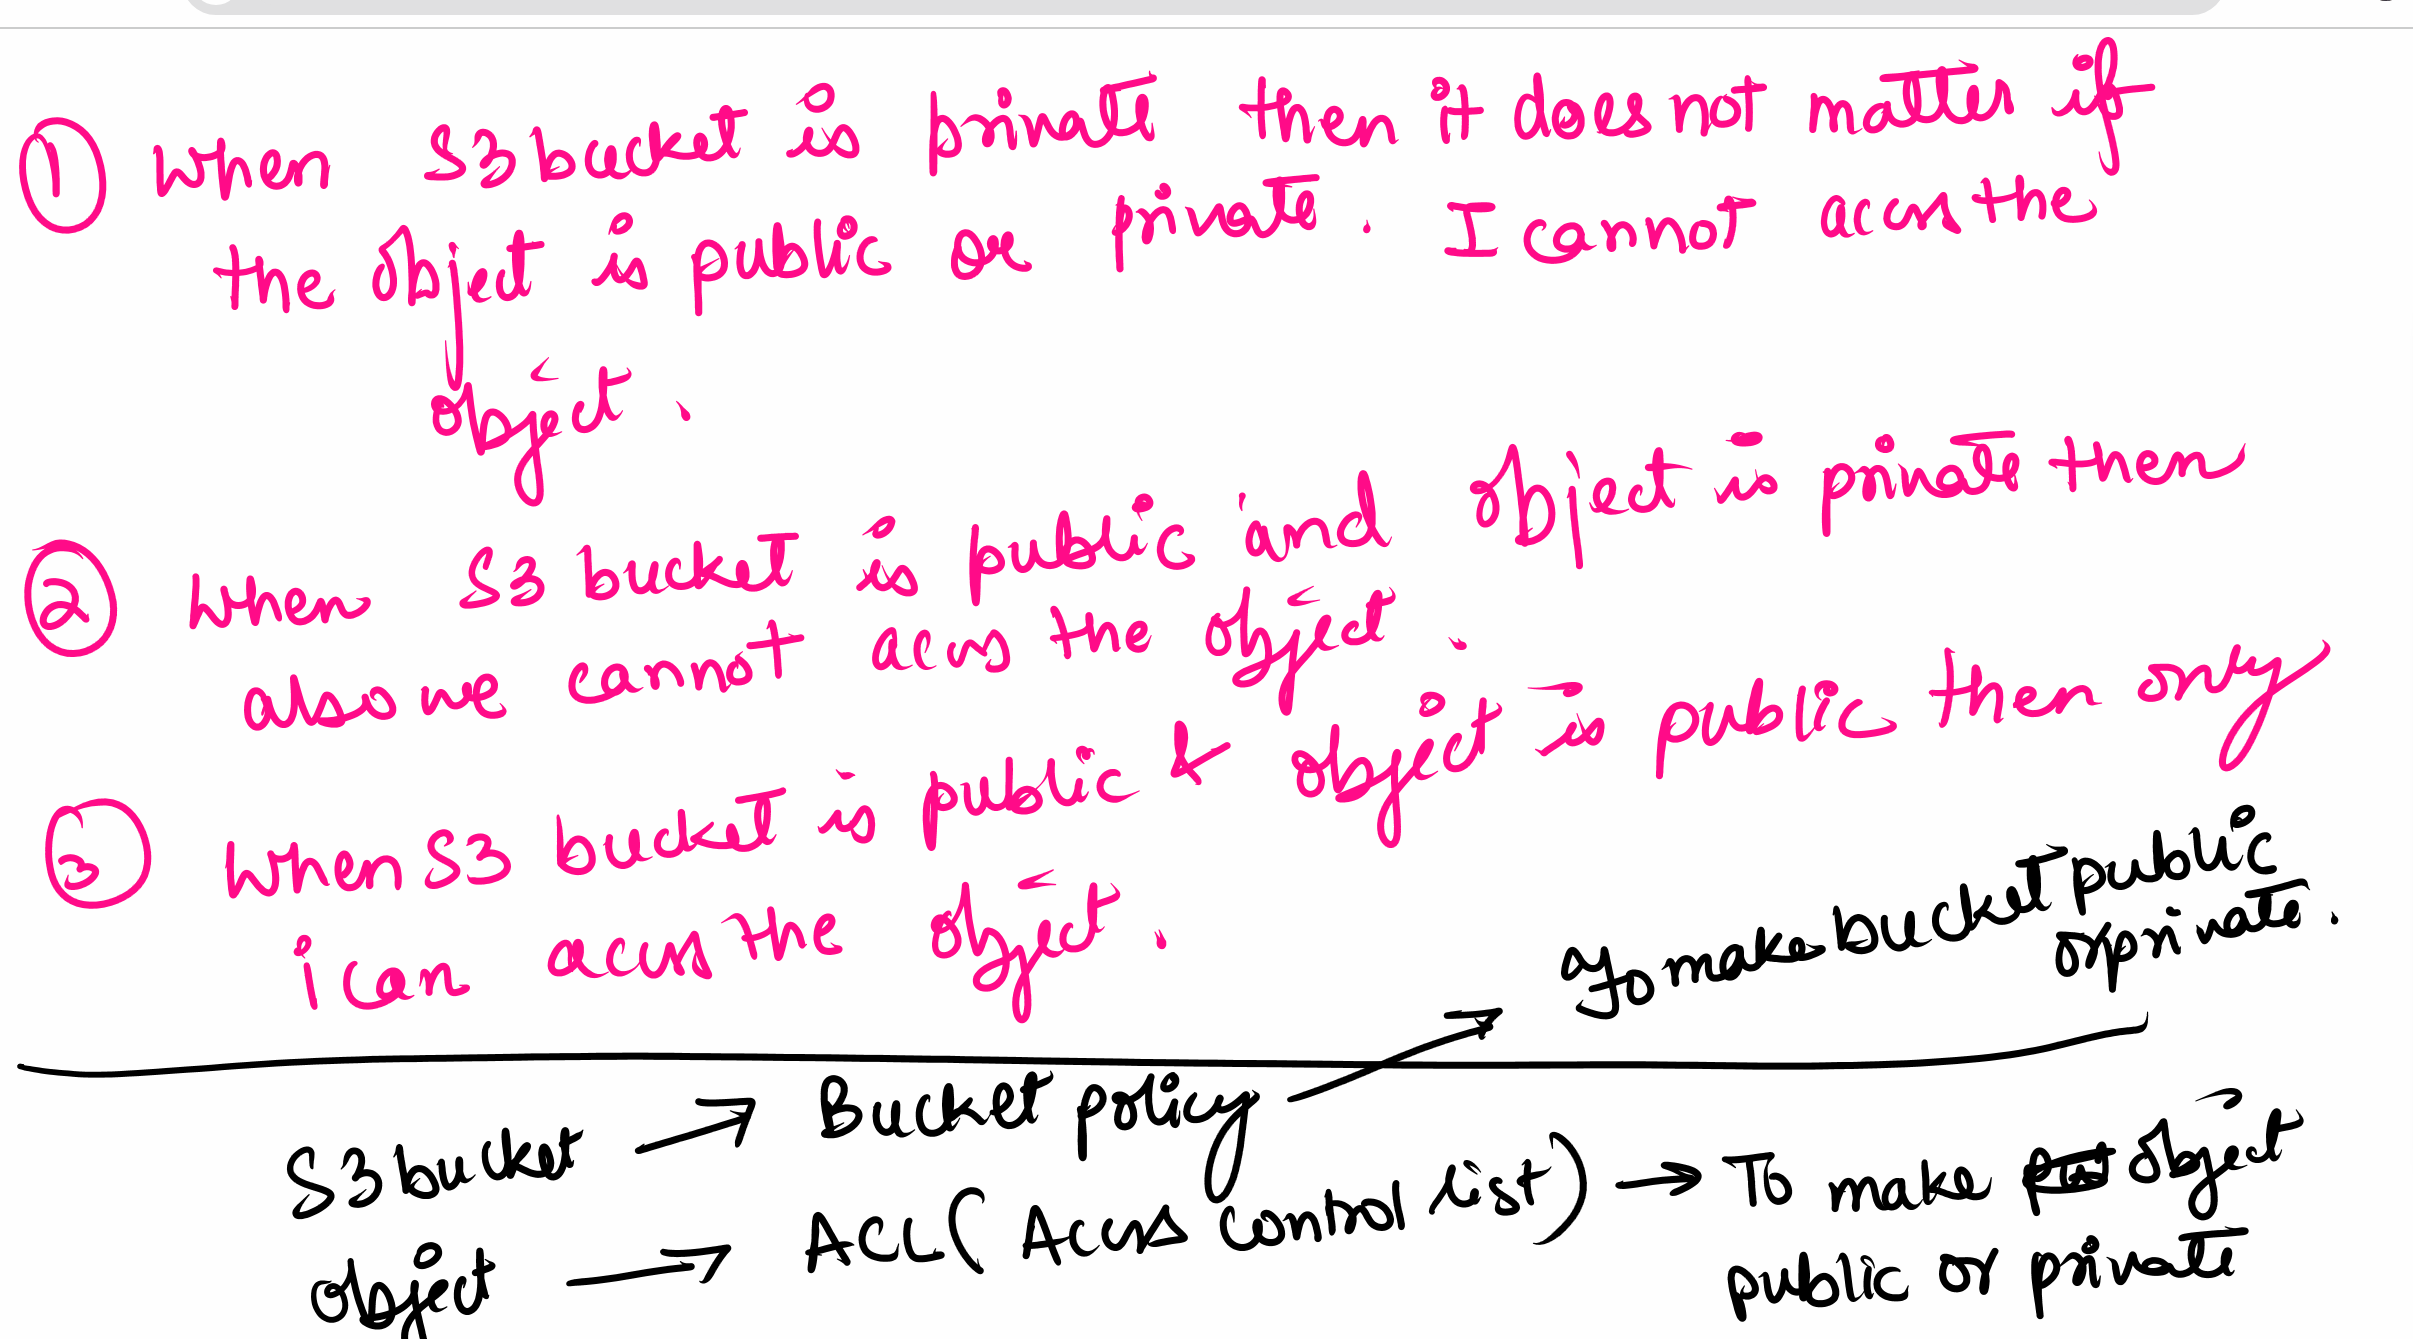 ① When S3 bucket is private then it does not matter if
the object is public or private. I cannot access the
object.
② When S3 bucket is public and object is private then
also we cannot access the object.
③ When S3 bucket is public & object is public then only
i can access the object.
To make bucket public
or private.
S3 bucket → Bucket policy →
object → ACL ( Access Control list) → To make object
public or private